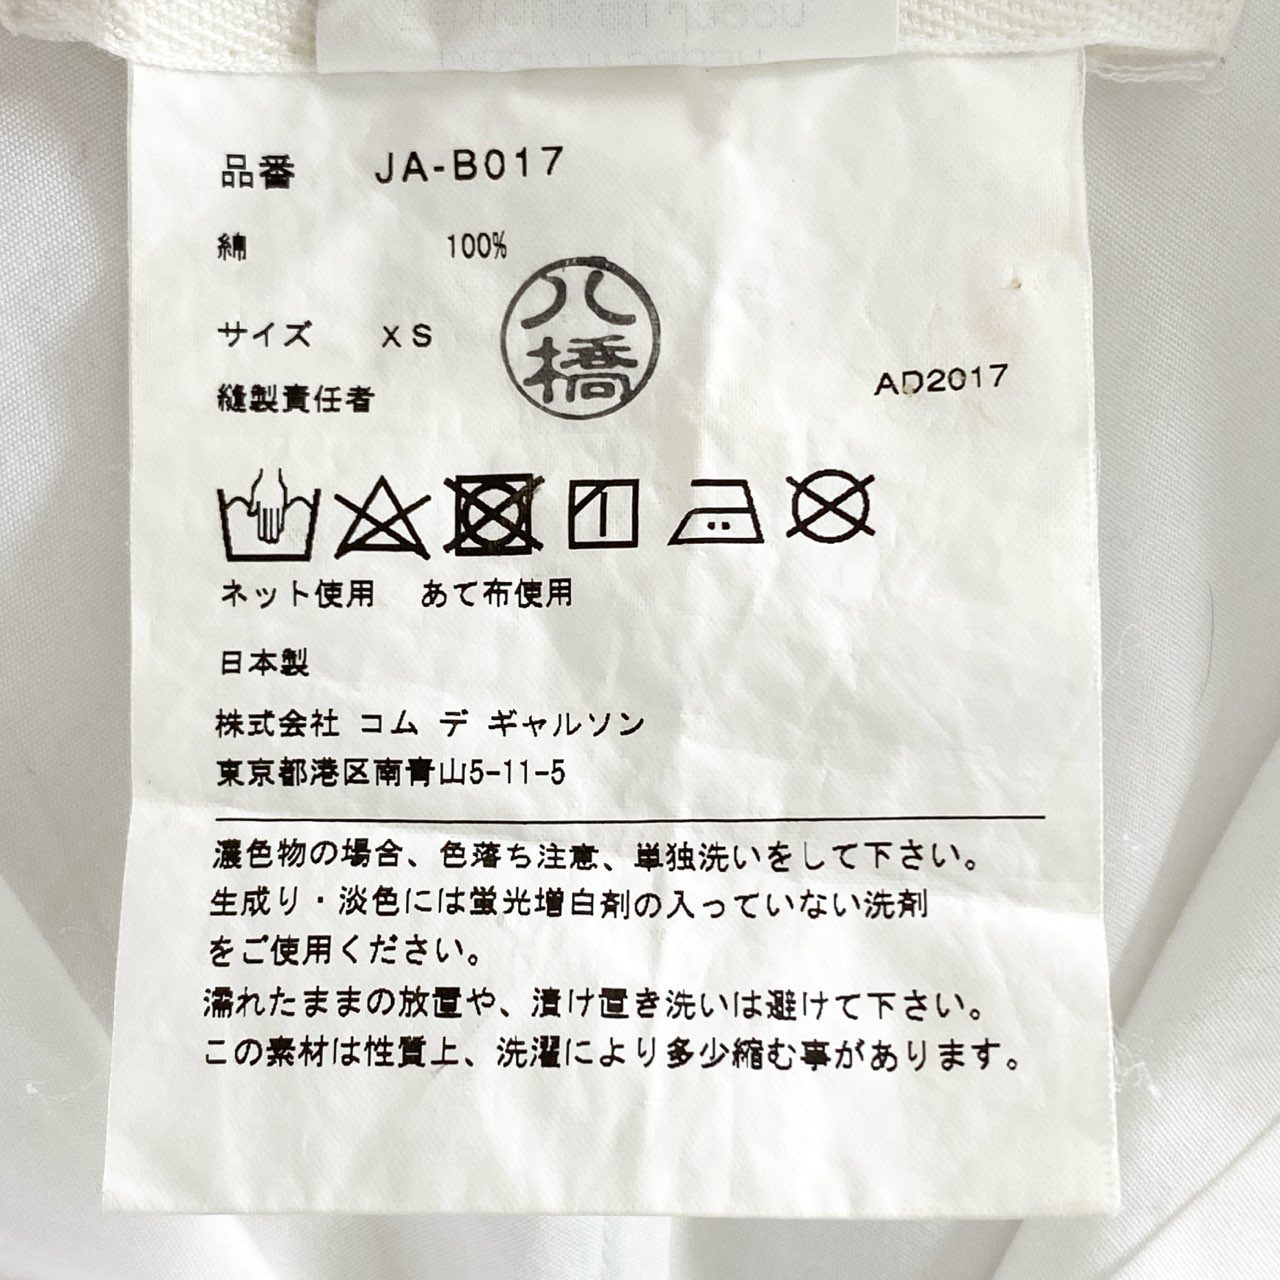 品番 JA-B017
綿 100%
サイズ XS
八橋
縫製責任者
AD2017
ネット使用 あて布使用
日本製
株式会社 コム デ ギャルソン
東京都港区南青山5-11-5
濃色物の場合、色落ち注意、単独洗いをして下さい。
生成り・淡色には蛍光増白剤の入っていない洗剤
をご使用ください。
濡れたままの放置や、漬け置き洗いは避けて下さい。
この素材は性質上、洗濯により多少縮む事があります。